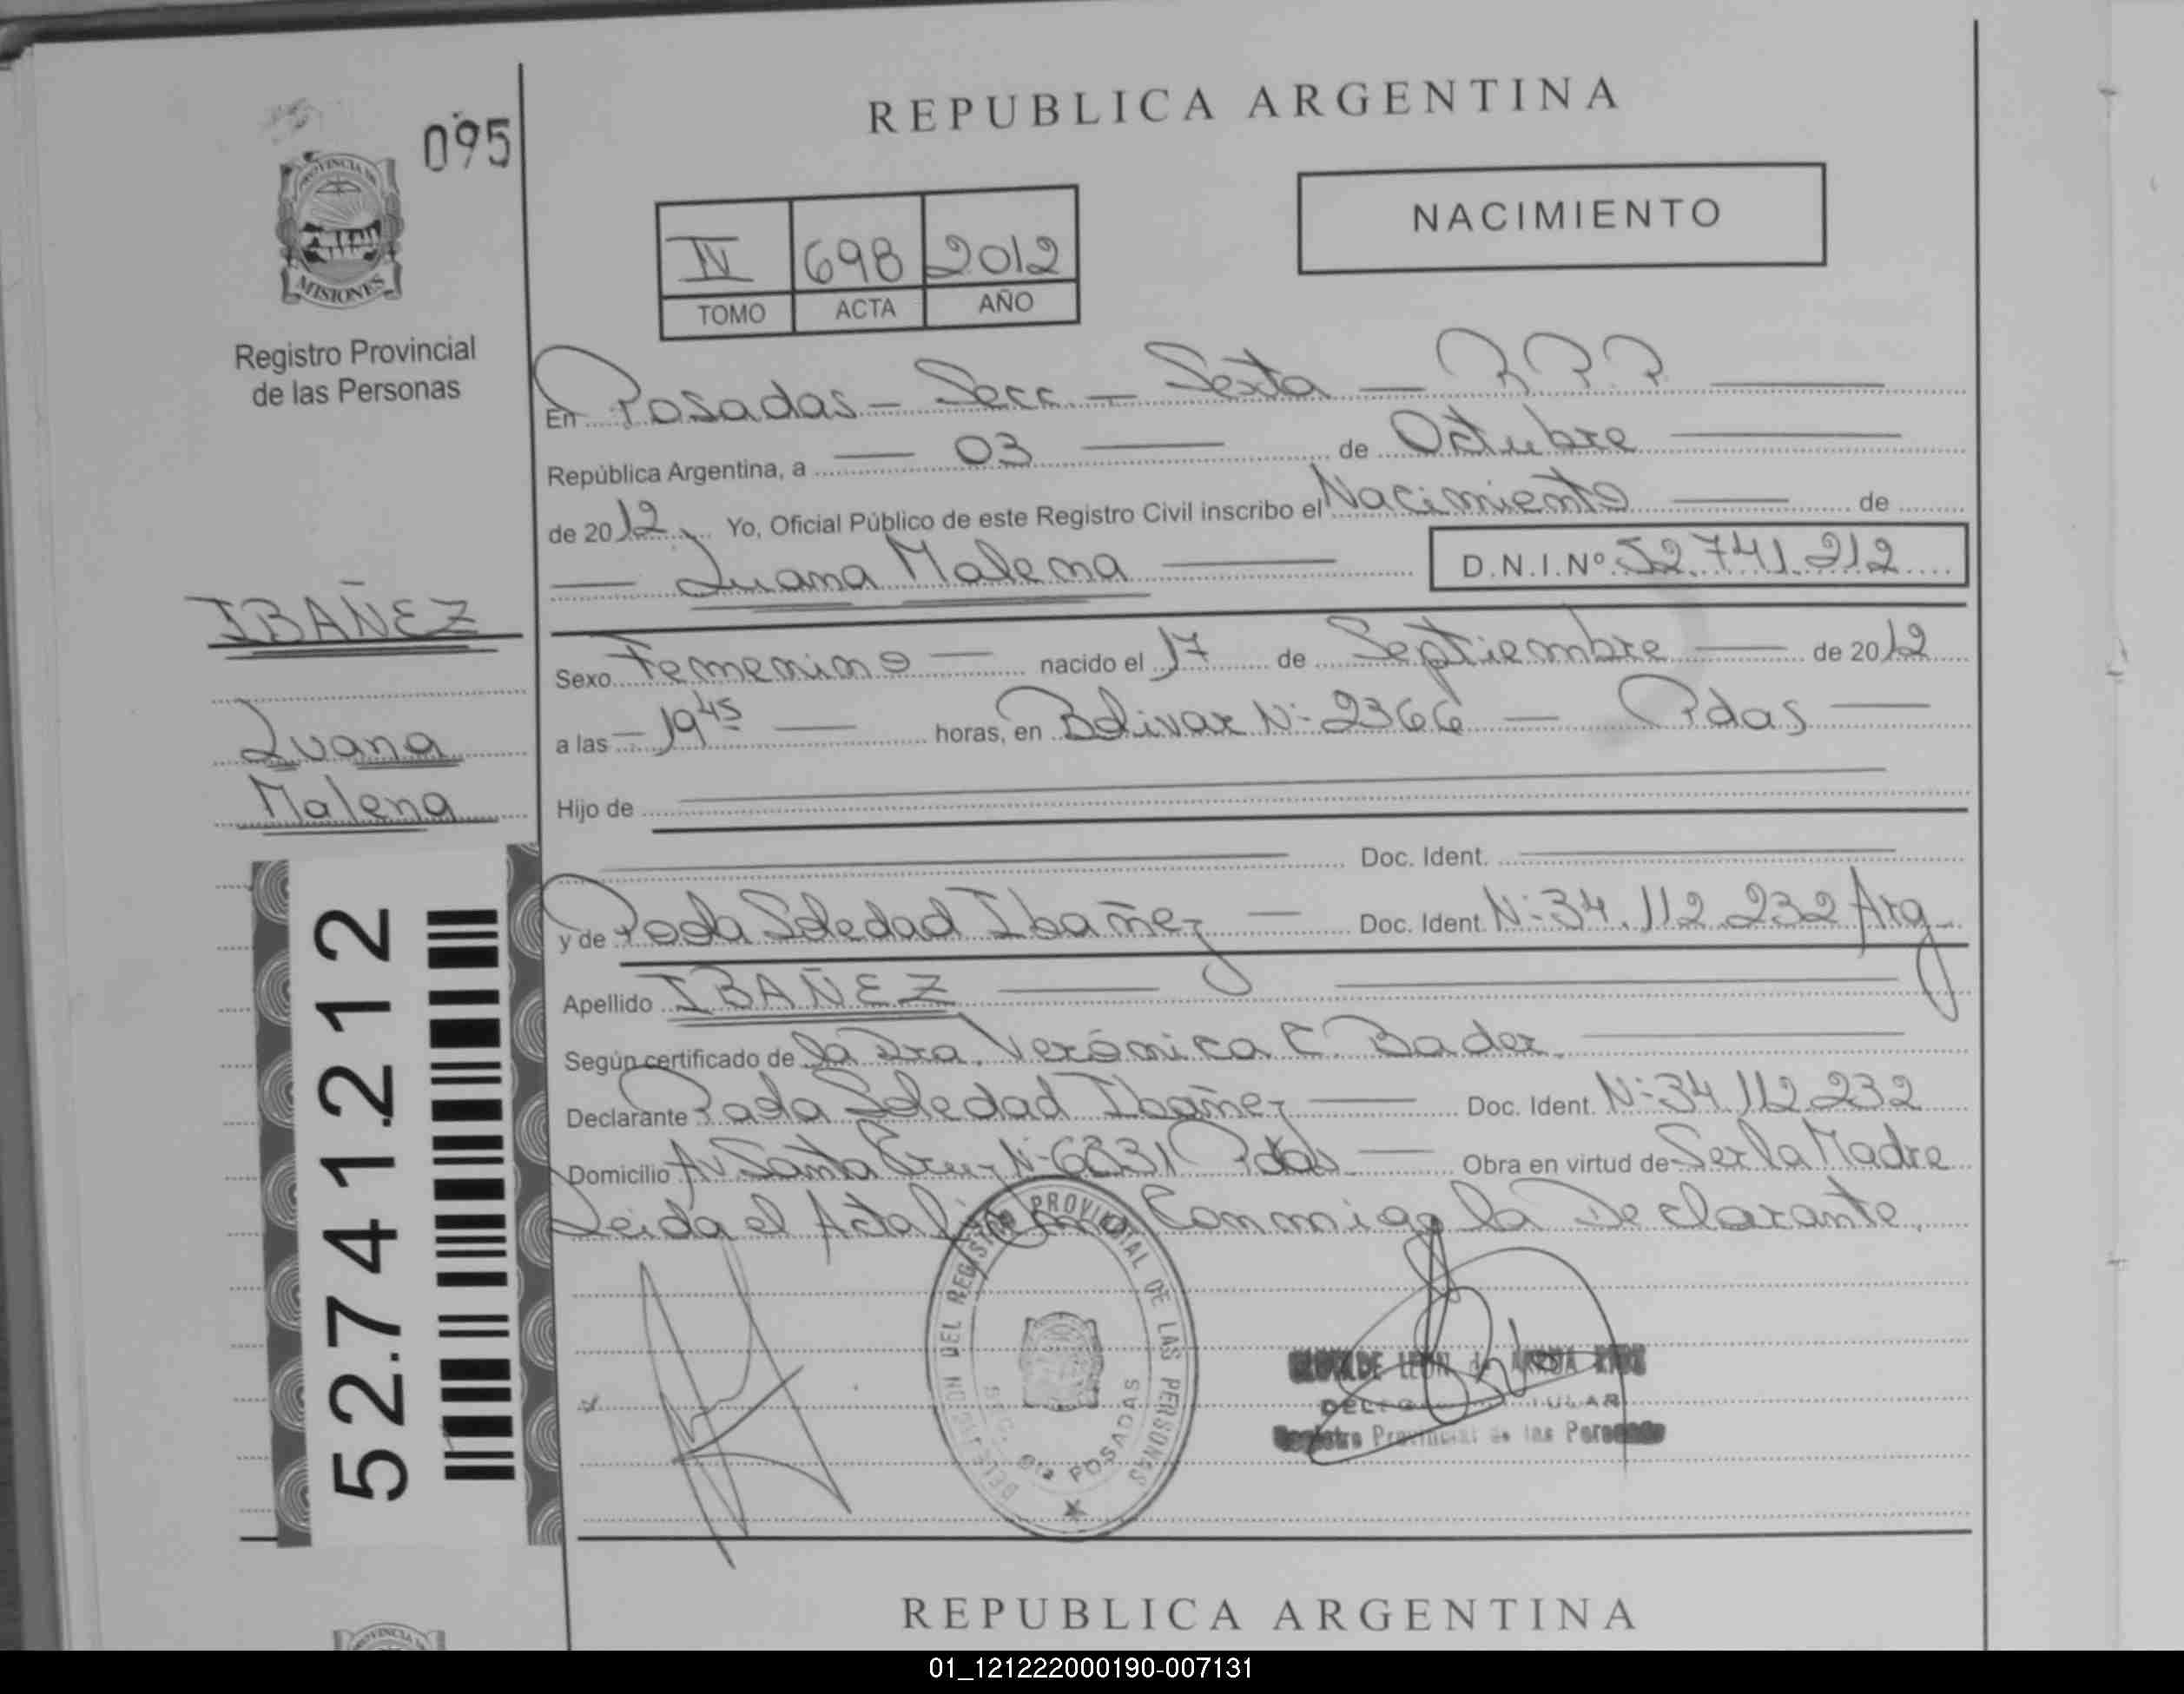 REPUBLICA ARGENTINA
095
PROVINCIA DE
MISIONES
Registro Provincial
de las Personas
NACIMIENTO
IV 698 2012
TOMO ACTA AÑO
En Posadas - Secc - Sexta - R P P
República Argentina, a 03 de Octubre
de 2012 Yo, Oficial Público de este Registro Civil inscribo el Nacimiento de
Luana Malena D.N.I.Nº 52.741.212
IBAÑEZ
Luana
Malena
52.741.212
Sexo Femenino nacido el 17 de Septiembre de 2012
a las 19 45 horas, en Bolivar N- 2366 - Pdas
Hijo de
Doc. Ident.
y de Soledad Ibañez Doc. Ident. N- 34.112.232 Arg
Apellido IBAÑEZ
Según certificado de la Dra. Verónica C. Bader
Declarante Soledad Ibañez Doc. Ident. N- 34.112.232
Domicilio Av Santa Cruz N- 6831 Pdas Obra en virtud de Ser la Madre
Leida el Acta Conmigo la Declarante.
DEL REGISTRO PROVINCIAL DE LAS PERSONAS
POSADAS
Registro Provincial de las Personas
REPUBLICA ARGENTINA
01_121222000190-007131